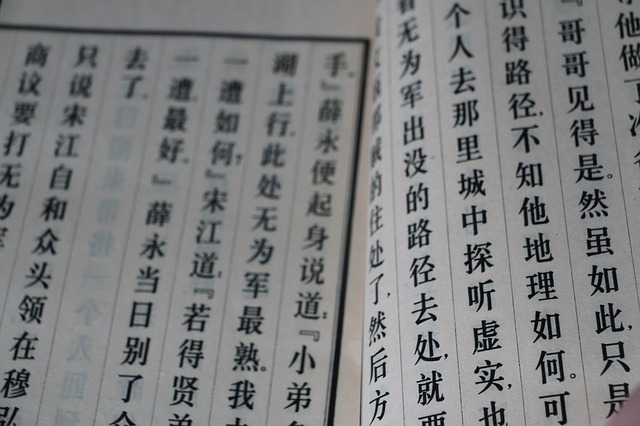 他做
『哥哥见得是。然虽如此，只是
识得路径，不知他地理如何。可
个人去那里城中探听虚实，也
看无为军出没的路径去处，就要
的住处了，然后方
手。』薛永便起身说道：『小弟
湖上行，此处无为军最熟。我
一遭如何？』宋江道：『若得贤弟
一遭，最好。』薛永当日别了
去了。
只说宋江自和众头领在穆弘
商议要打无为军